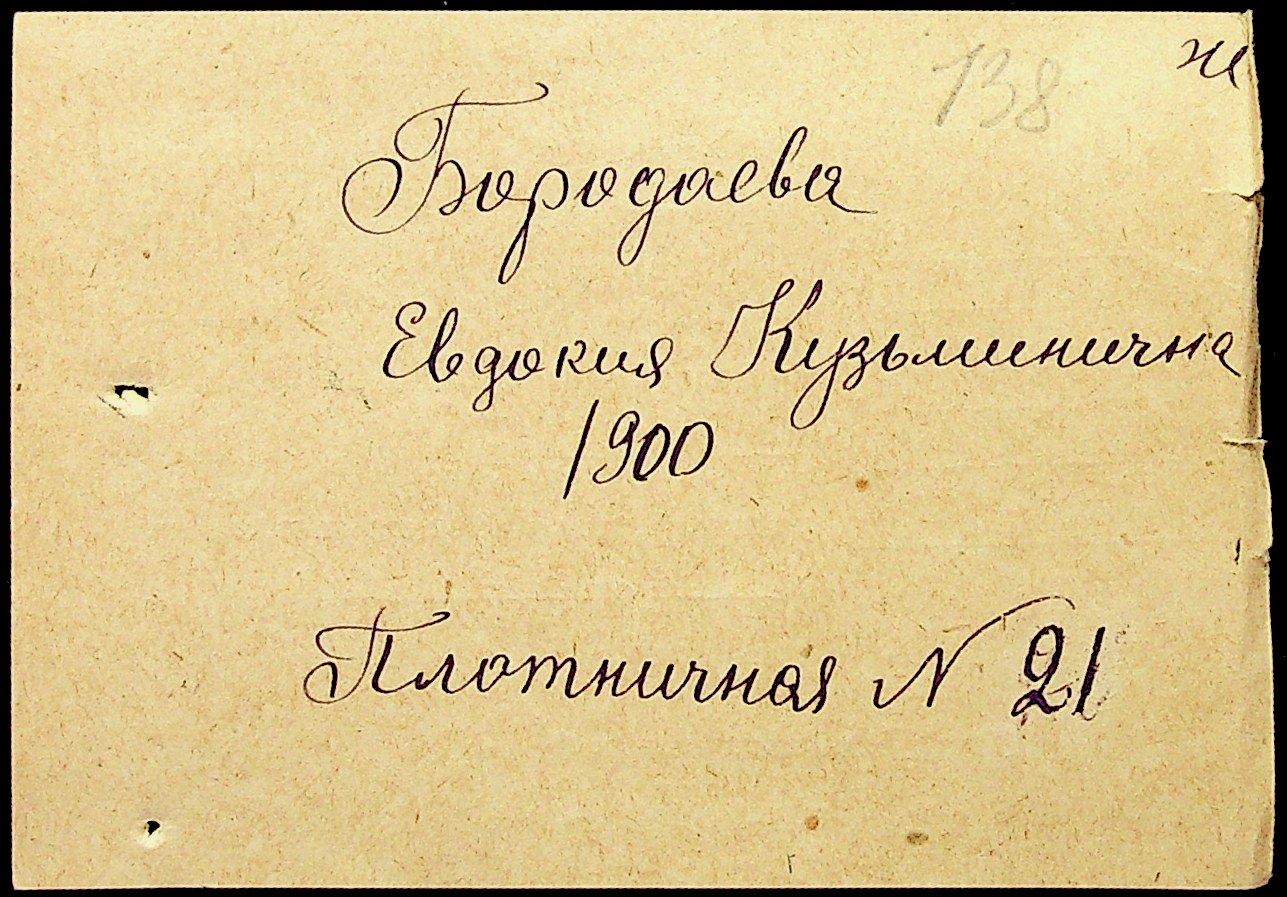 138
ж
Бородаева
Евдокия Кузьминична
1900
Плотничная N 21